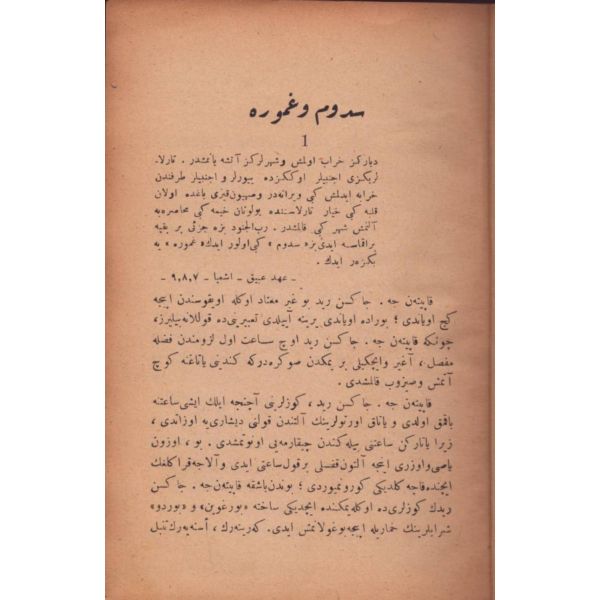 سدوم وغموره
1
دیاركز خراب اولمش وشهرلركز آتشه یانمشدر . تارلا-
لریكزی اجنبیلر اوككزده ییورلر و اجنبیلر طرفندن
خرابه ایدلمش كبی ویرانه‌در وصهیون‌قیزی باغده اولان
قلبه كبی خیار تارلاسنده بولونان خیمه كبی محاصره‌یه
آلنمش شهر كبی قالمشدر . رب‌الجنود بزه جزئی بر بقیه
براقماسه ایدی‌بزه سدوم » كبی‌اولور ایدك« غموره » یه
بكزەر ایدك .
- عهد عتیق - اشعیا - ٩،٨،٧ -
قاپیته‌ن جه . جاكسن رید بو غیر معتاد اوكله اویقوسندن اپجه
كچ اویاندی ؛ بوراده اویاندی یرینه آییلدی تعبیرینی‌ده قوللانه‌بیلیرز،
چونكه قاپیته‌ن جه . جاكسن رید اوچ ساعت اول لزومندن فضله
مفصل ، آغیر وایچكیلی بر یمكدن صوكره‌دركه كندینی یاتاغنه كوچ
آتمش وصیزوب قالمشدی .
قاپیته‌ن جه . جاكسن رید ، كوزلرینی آچنجه ایلك ایشی‌ساعتنه
باقمق اولدی و یاتاق اورتولرینك آلتندن قولنی دیشاری‌یه اوزاتدی ،
زیرا یاتاركن ساعتنی بیله‌كندن چیقارمه‌یی اونوتمشدی . بو ، اوزون
یاصی‌واوزری اپجه آلتون‌قفصلی برقول‌ساعتی ایدی وآلاجه‌قراكلغك
ایچنده‌قاچه كلدیكی كورونمیوردی ؛ بوندن‌باشقه قاپیته‌ن‌جه . جاكسن
ریدك كوزلری‌ده اوكله‌یمكنده ایچدیكی ساخته «بورغوین» و «بوردو»
شرابلرینك خماریله اپجه‌بوغولانمش ایدی. كه‌رینه‌رك ، أسنه‌یه‌رك‌تنبل